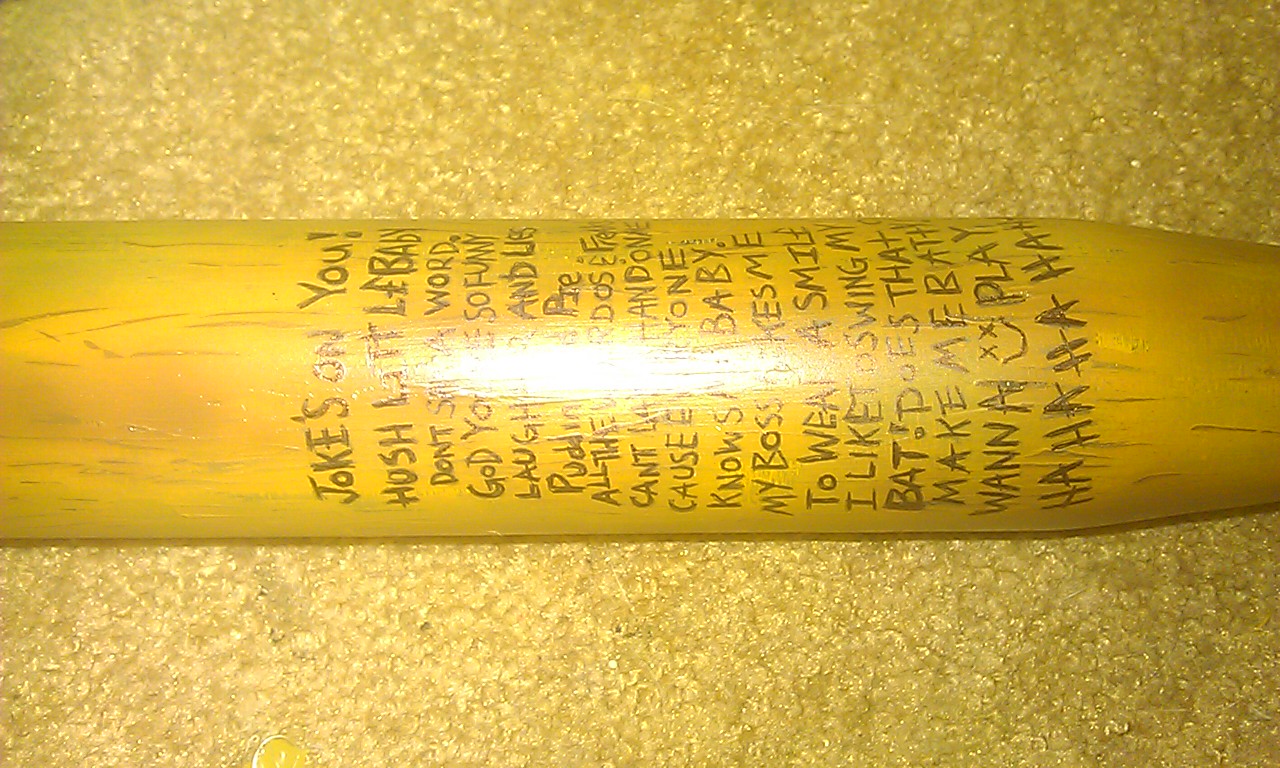 JOKE'S ON YOU!
HUSH LITTL LABABY
DONT A WORD.
GOD YO SO FUNNY
LAUGH AND LES
Puddin Pie
ALL THE DOSE FROM
CANT TANDONE
CAUSE YONE
KNOWS BABY.
MY BOSS KES ME
TO WEAR A SMILE
I LIKE TO SWING MY
BAT! DOES THAT
MAKE ME BATTY
WANNA PLAY
HAHAHAHA HAHAHAH